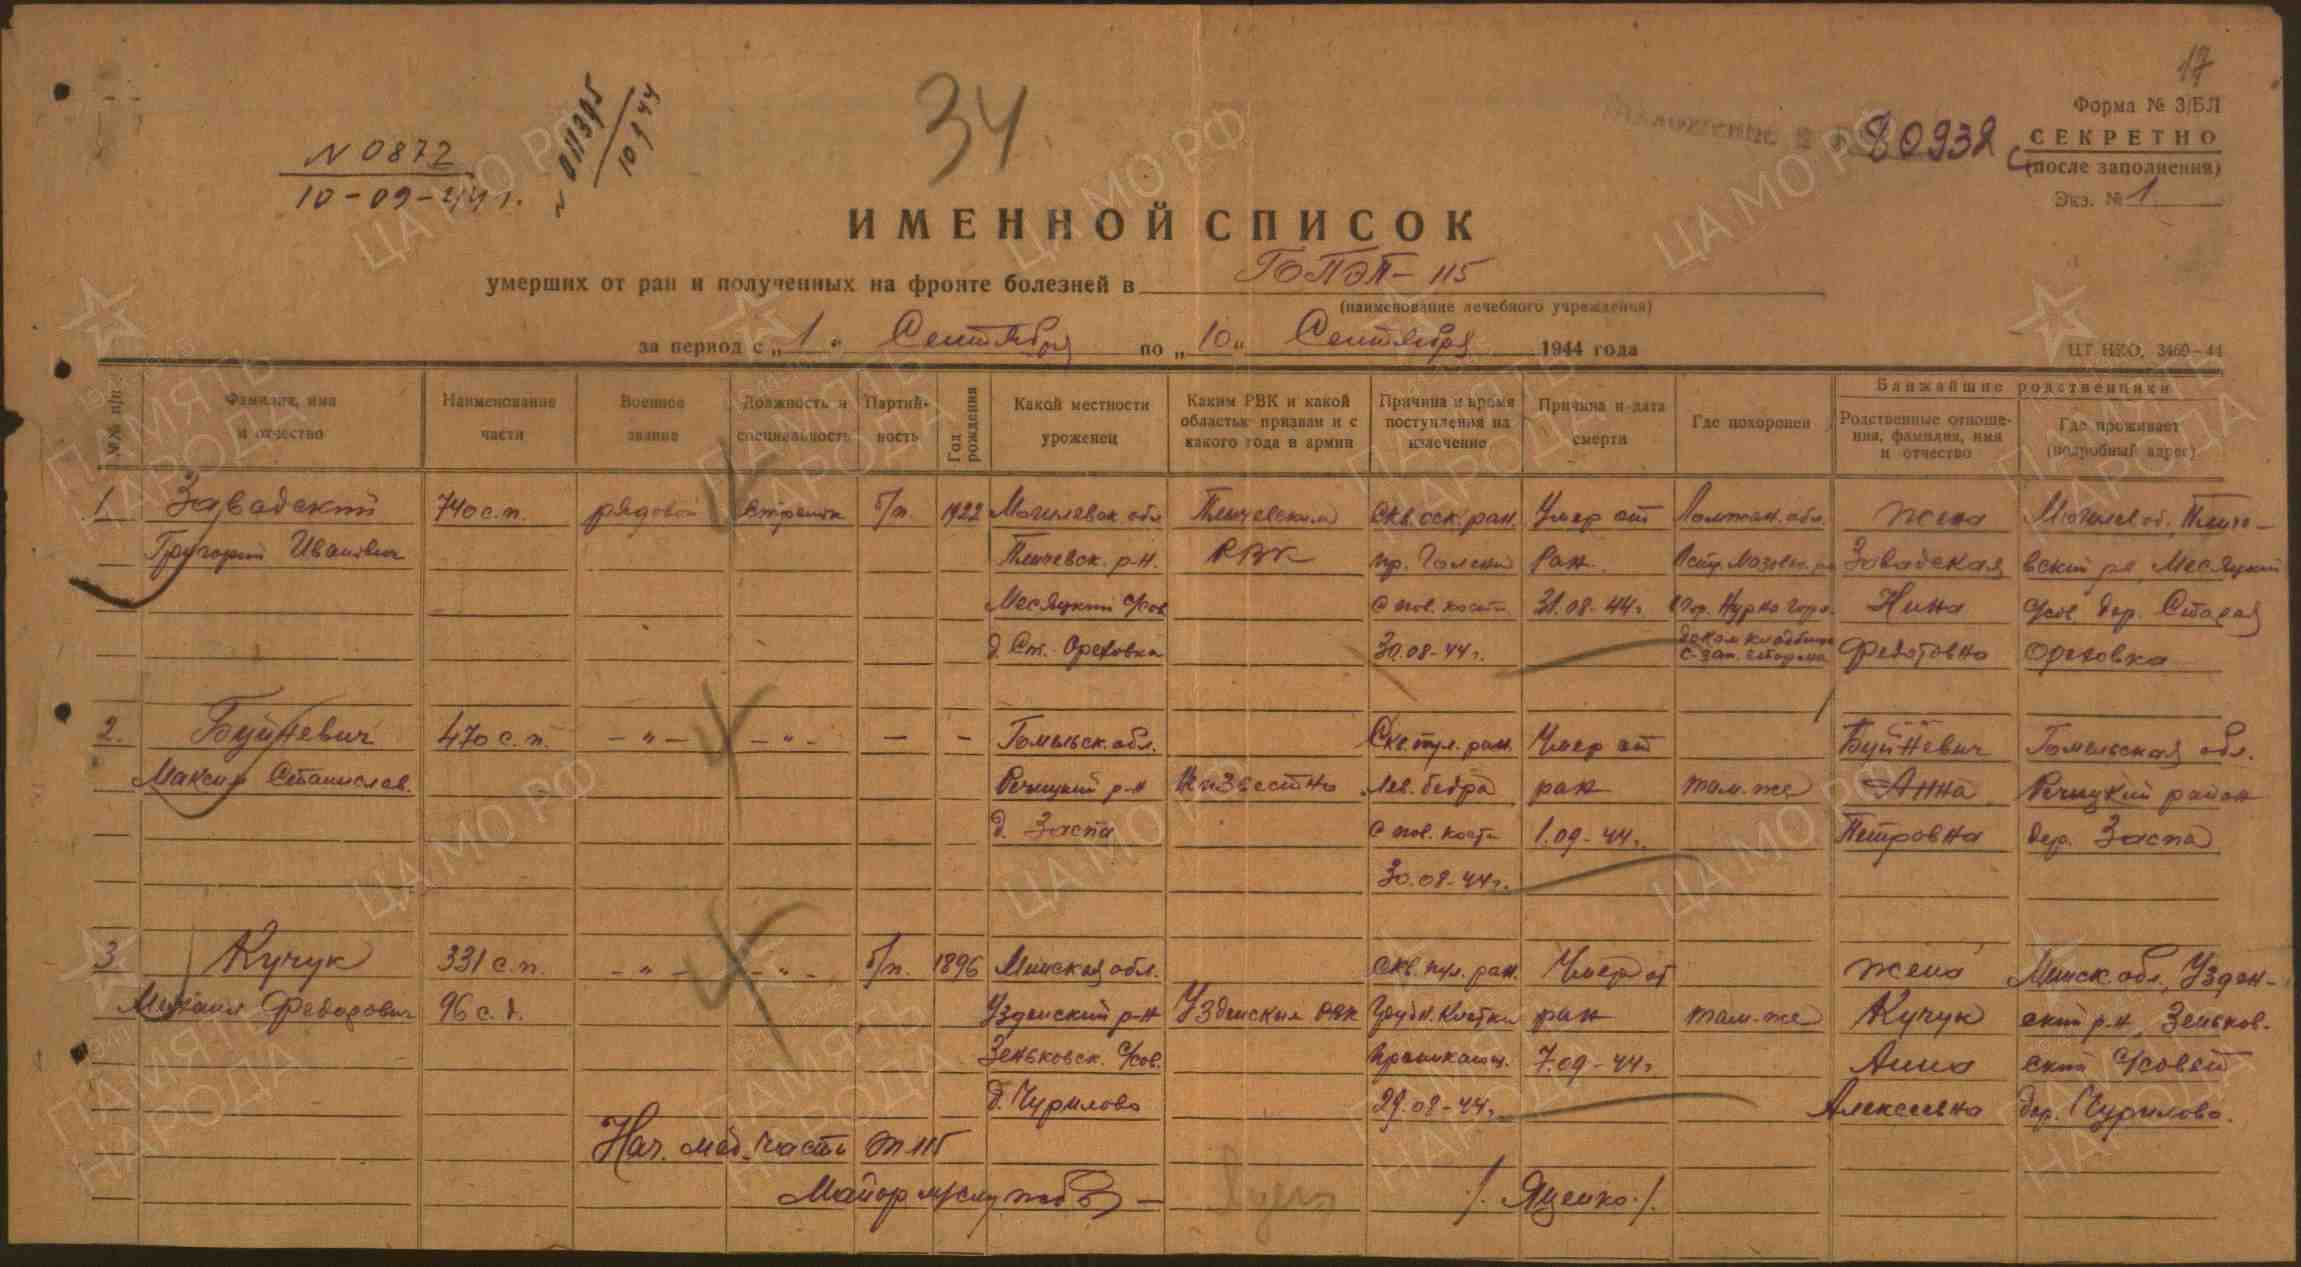 17
Форма № 3/БЛ
34
№ 0872
10-09-44 г.
№ 011395
10 9 44
80932 с
СЕКРЕТНО
(после заполнения)
Экз. № 1
ИМЕННОЙ СПИСОК
умерших от ран и полученных на фронте болезней в ГОПЭП-115
(наименование лечебного учреждения)
за период с „1“ Сентября по „10“ Сентября 1944 года
ЦТ НКО, 3469-44
№№ п/п
Фамилия, имя и отчество
Наименование части
Военное звание
Должность и специальность
Партийность
Год рождения
Какой местности уроженец
Каким РВК и какой областью призван и с какого года в армии
Причина и время поступления на излечение
Причина и дата смерти
Где похоронен
Ближайшие родственники
Родственные отношения, фамилия, имя и отчество
Где проживает (подробный адрес)
1. Завадский 740 с.п. рядовой стрелок б/п. 1922 Могилевск. обл. Скв. оск. ран. Умер от Ломжен. обл. жена Могилев об.
Григорий Иванович р-н. РВК пр. голени ран. Завадская вский р-н, Месяцкий
Месяцкий с/сов. с пов. кости 31.08-44г. Нина с/сов. дер. Старая
д. Ст. Ореховка 30.08-44г. с зап. стороны Федотовна Ореховка
2. Буйневич 470 с.п. -"- -"- - - Гомельск. обл. Скв. пул. ран. Умер от Буйневич Гомельская обл.
Максим Станислав. Речицкий р-н Неизвестно Лев. бедра ран там-же Анна Речицкий район
д. Заспа с пов. кости 1.09-44г. Петровна дер. Заспа
30.08-44г.
3. Кучук 331 с.п. -"- -"- б/п. 1896 Минская обл. Скв. пул. ран. Умер от жена Минск. обл., Узден-
Михаил Федорович 96 с.д. Узденский р-н Узденским РВК Грудн. клетки ран там-же Кучук ский р-н, Зеньков-
Зеньковск. с/сов. проникающ. 7.09-44г. Анна ский с/совет
д. Чурилово 29.08-44г. Алексеевна дер. Чурилово.
Нач. мед. части ЭП 115
Майор м/службы - /. Яценко ./
ЦА МО РФ
ПАМЯТЬ НАРОДА